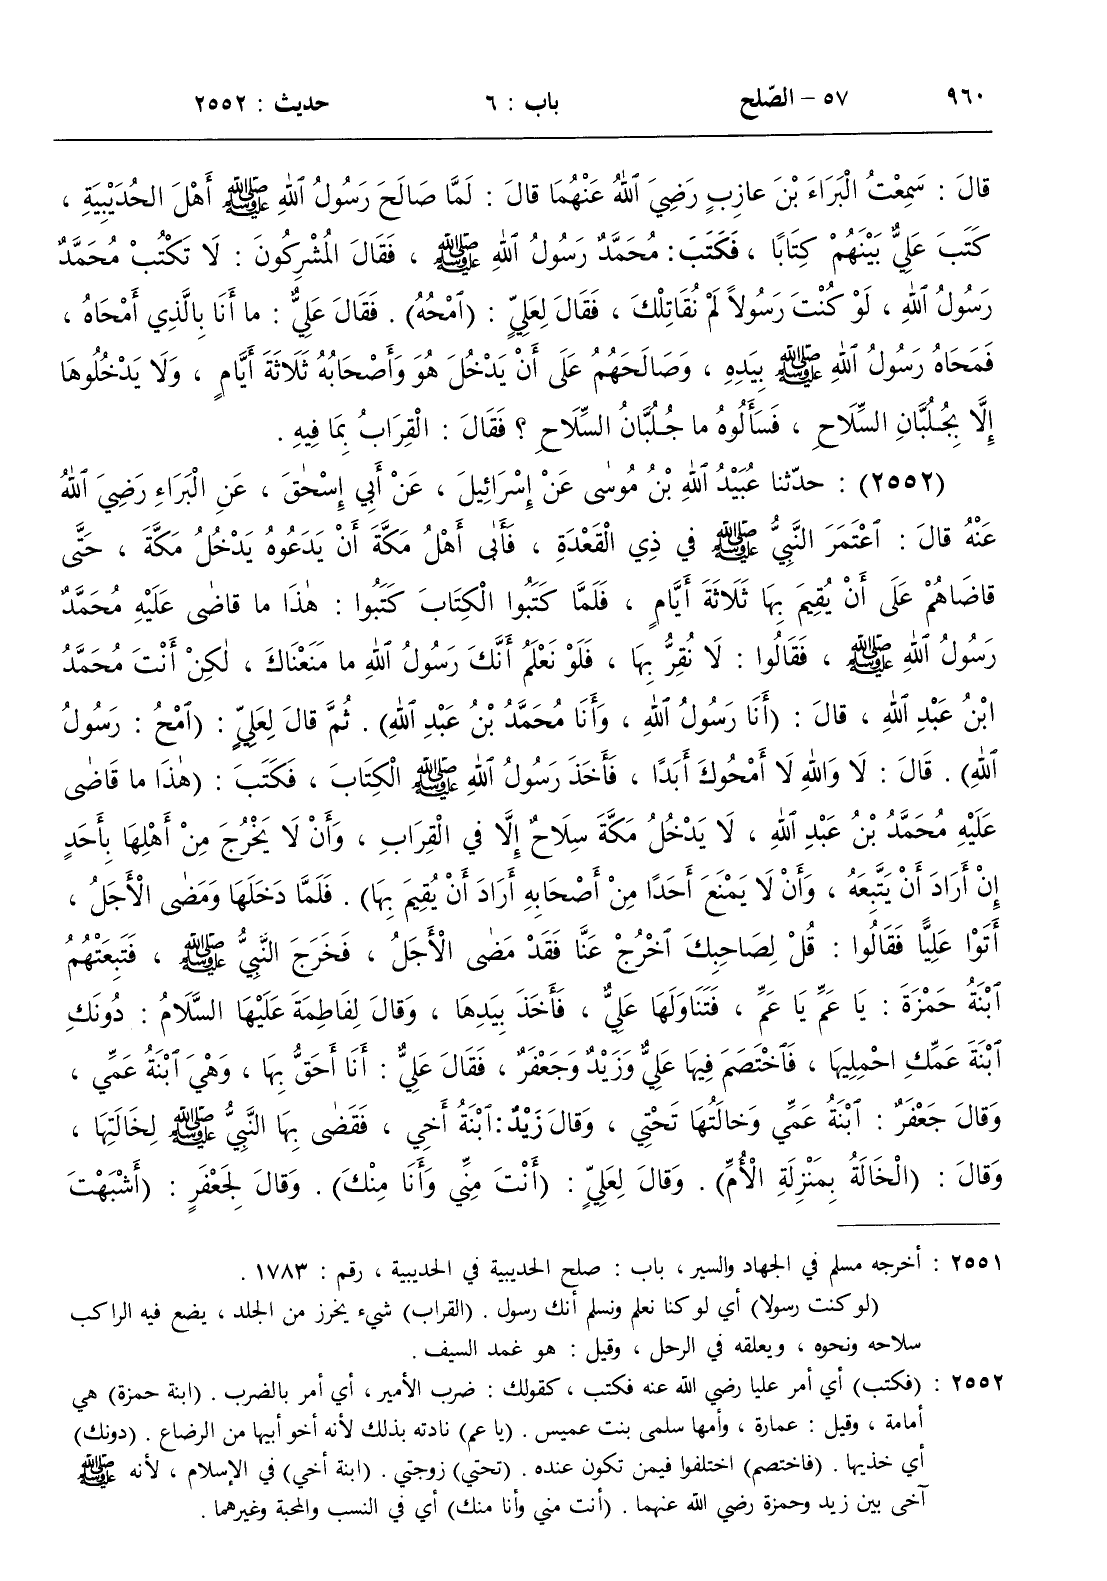 ٩٦٠ ٥٧ – الصّلح باب : ٦ حديث : ٢٥٥٢
قالَ : سَمِعْتُ الْبَرَاءَ بْنَ عازِبٍ رَضِيَ ٱللهُ عَنْهُمَا قالَ : لَمَّا صَالَحَ رَسُولُ ٱللهِ ﷺ أَهْلَ الحُدَيْبِيَةِ ،
كَتَبَ عَلِيٌّ بَيْنَهُمْ كِتَابًا ، فَكَتَبَ : مُحَمَّدٌ رَسُولُ ٱللهِ ﷺ ، فَقَالَ الْمُشْرِكُونَ : لَا تَكْتُبْ مُحَمَّدٌ
رَسُولُ ٱللهِ ، لَوْ كُنْتَ رَسُولاً لَمْ نُقَاتِلْكَ ، فَقَالَ لِعَلِيٍّ : (ٱمْحُهُ) . فَقَالَ عَلِيٌّ : ما أَنَا بِالَّذِي أَمْحَاهُ ،
فَمَحَاهُ رَسُولُ ٱللهِ ﷺ بِيَدِهِ ، وَصَالَحَهُمْ عَلَى أَنْ يَدْخُلَ هُوَ وَأَصْحَابُهُ ثَلَاثَةَ أَيَّامٍ ، وَلَا يَدْخُلُوهَا
إِلَّا بِجُلُبَّانِ السِّلَاحِ ، فَسَأَلُوهُ ما جُلُبَّانُ السِّلَاحِ ؟ فَقَالَ : الْقِرَابُ بِمَا فِيهِ .
(٢٥٥٢) : حدّثنا عُبَيْدُ ٱللهِ بْنُ مُوسٰى عَنْ إِسْرَائِيلَ ، عَنْ أَبِي إِسْحٰقَ ، عَنِ الْبَرَاءِ رَضِيَ ٱللهُ
عَنْهُ قالَ : ٱعْتَمَرَ النَّبِيُّ ﷺ في ذِي الْقَعْدَةِ ، فَأَبٰى أَهْلُ مَكَّةَ أَنْ يَدَعُوهُ يَدْخُلُ مَكَّةَ ، حَتَّى
قاضَاهُمْ عَلَى أَنْ يُقِيمَ بِهَا ثَلَاثَةَ أَيَّامٍ ، فَلَمَّا كَتَبُوا الْكِتَابَ كَتَبُوا : هٰذَا ما قاضٰى عَلَيْهِ مُحَمَّدٌ
رَسُولُ ٱللهِ ﷺ ، فَقَالُوا : لَا نُقِرُّ بِهَا ، فَلَوْ نَعْلَمُ أَنَّكَ رَسُولُ ٱللهِ ما مَنَعْنَاكَ ، لٰكِنْ أَنْتَ مُحَمَّدُ
ابْنُ عَبْدِ ٱللهِ ، قالَ : (أَنَا رَسُولُ ٱللهِ ، وَأَنَا مُحَمَّدُ بْنُ عَبْدِ ٱللهِ) . ثُمَّ قالَ لِعَلِيٍّ : (ٱمْحُ : رَسُولُ
ٱللهِ) . قَالَ : لَا وَٱللهِ لَا أَمْحُوكَ أَبَدًا ، فَأَخَذَ رَسُولُ ٱللهِ ﷺ الْكِتَابَ ، فَكَتَبَ : (هٰذَا ما قَاضٰى
عَلَيْهِ مُحَمَّدُ بْنُ عَبْدِ ٱللهِ ، لَا يَدْخُلُ مَكَّةَ سِلَاحٌ إِلَّا في الْقِرَابِ ، وَأَنْ لَا يَخْرُجَ مِنْ أَهْلِهَا بِأَحَدٍ
إِنْ أَرَادَ أَنْ يَتَّبِعَهُ ، وَأَنْ لَا يَمْنَعَ أَحَدًا مِنْ أَصْحَابِهِ أَرَادَ أَنْ يُقِيمَ بِهَا) . فَلَمَّا دَخَلَهَا وَمَضٰى الْأَجَلُ ،
أَتَوْا عَلِيًّا فَقَالُوا : قُلْ لِصَاحِبِكَ ٱخْرُجْ عَنَّا فَقَدْ مَضٰى الْأَجَلُ ، فَخَرَجَ النَّبِيُّ ﷺ ، فَتَبِعَتْهُمُ
ٱبْنَةُ حَمْزَةَ : يَا عَمِّ يَا عَمِّ ، فَتَنَاوَلَهَا عَلِيٌّ ، فَأَخَذَ بِيَدِهَا ، وَقالَ لِفَاطِمَةَ عَلَيْهَا السَّلَامُ : دُونَكِ
ٱبْنَةَ عَمِّكِ احْمِلِيهَا ، فَٱخْتَصَمَ فِيهَا عَلِيٌّ وَزَيْدٌ وَجَعْفَرٌ ، فَقَالَ عَلِيٌّ : أَنَا أَحَقُّ بِهَا ، وَهْيَ ٱبْنَةُ عَمِّي ،
وَقالَ جَعْفَرٌ : ٱبْنَةُ عَمِّي وَخالَتُهَا تَحْتِي ، وَقالَ زَيْدٌ : ٱبْنَةُ أَخِي ، فَقَضٰى بِهَا النَّبِيُّ ﷺ لِخَالَتِهَا ،
وَقالَ : (الْخَالَةُ بِمَنْزِلَةِ الْأُمِّ) . وَقالَ لِعَلِيٍّ : (أَنْتَ مِنِّي وَأَنَا مِنْكَ) . وَقالَ لِجَعْفَرٍ : (أَشْبَهْتَ
٢٥٥١ : أخرجه مسلم في الجهاد والسير ، باب : صلح الحديبية في الحديبية ، رقم : ١٧٨٣ .
(لو كنت رسولا) أي لو كنا نعلم ونسلم أنك رسول . (القراب) شيء يخرز من الجلد ، يضع فيه الراكب
سلاحه ونحوه ، ويعلقه في الرحل ، وقيل : هو غمد السيف .
٢٥٥٢ : (فكتب) أي أمر عليا رضي الله عنه فكتب ، كقولك : ضرب الأمير ، أي أمر بالضرب . (ابنة حمزة) هي
أمامة ، وقيل : عمارة ، وأمها سلمى بنت عميس . (يا عم) نادته بذلك لأنه أخو أبيها من الرضاع . (دونك)
أي خذيها . (فاختصم) اختلفوا فيمن تكون عنده . (تحتي) زوجتي . (ابنة أخي) في الإسلام ، لأنه ﷺ
آخى بين زيد وحمزة رضي الله عنهما . (أنت مني وأنا منك) أي في النسب والمحبة وغيرهما .